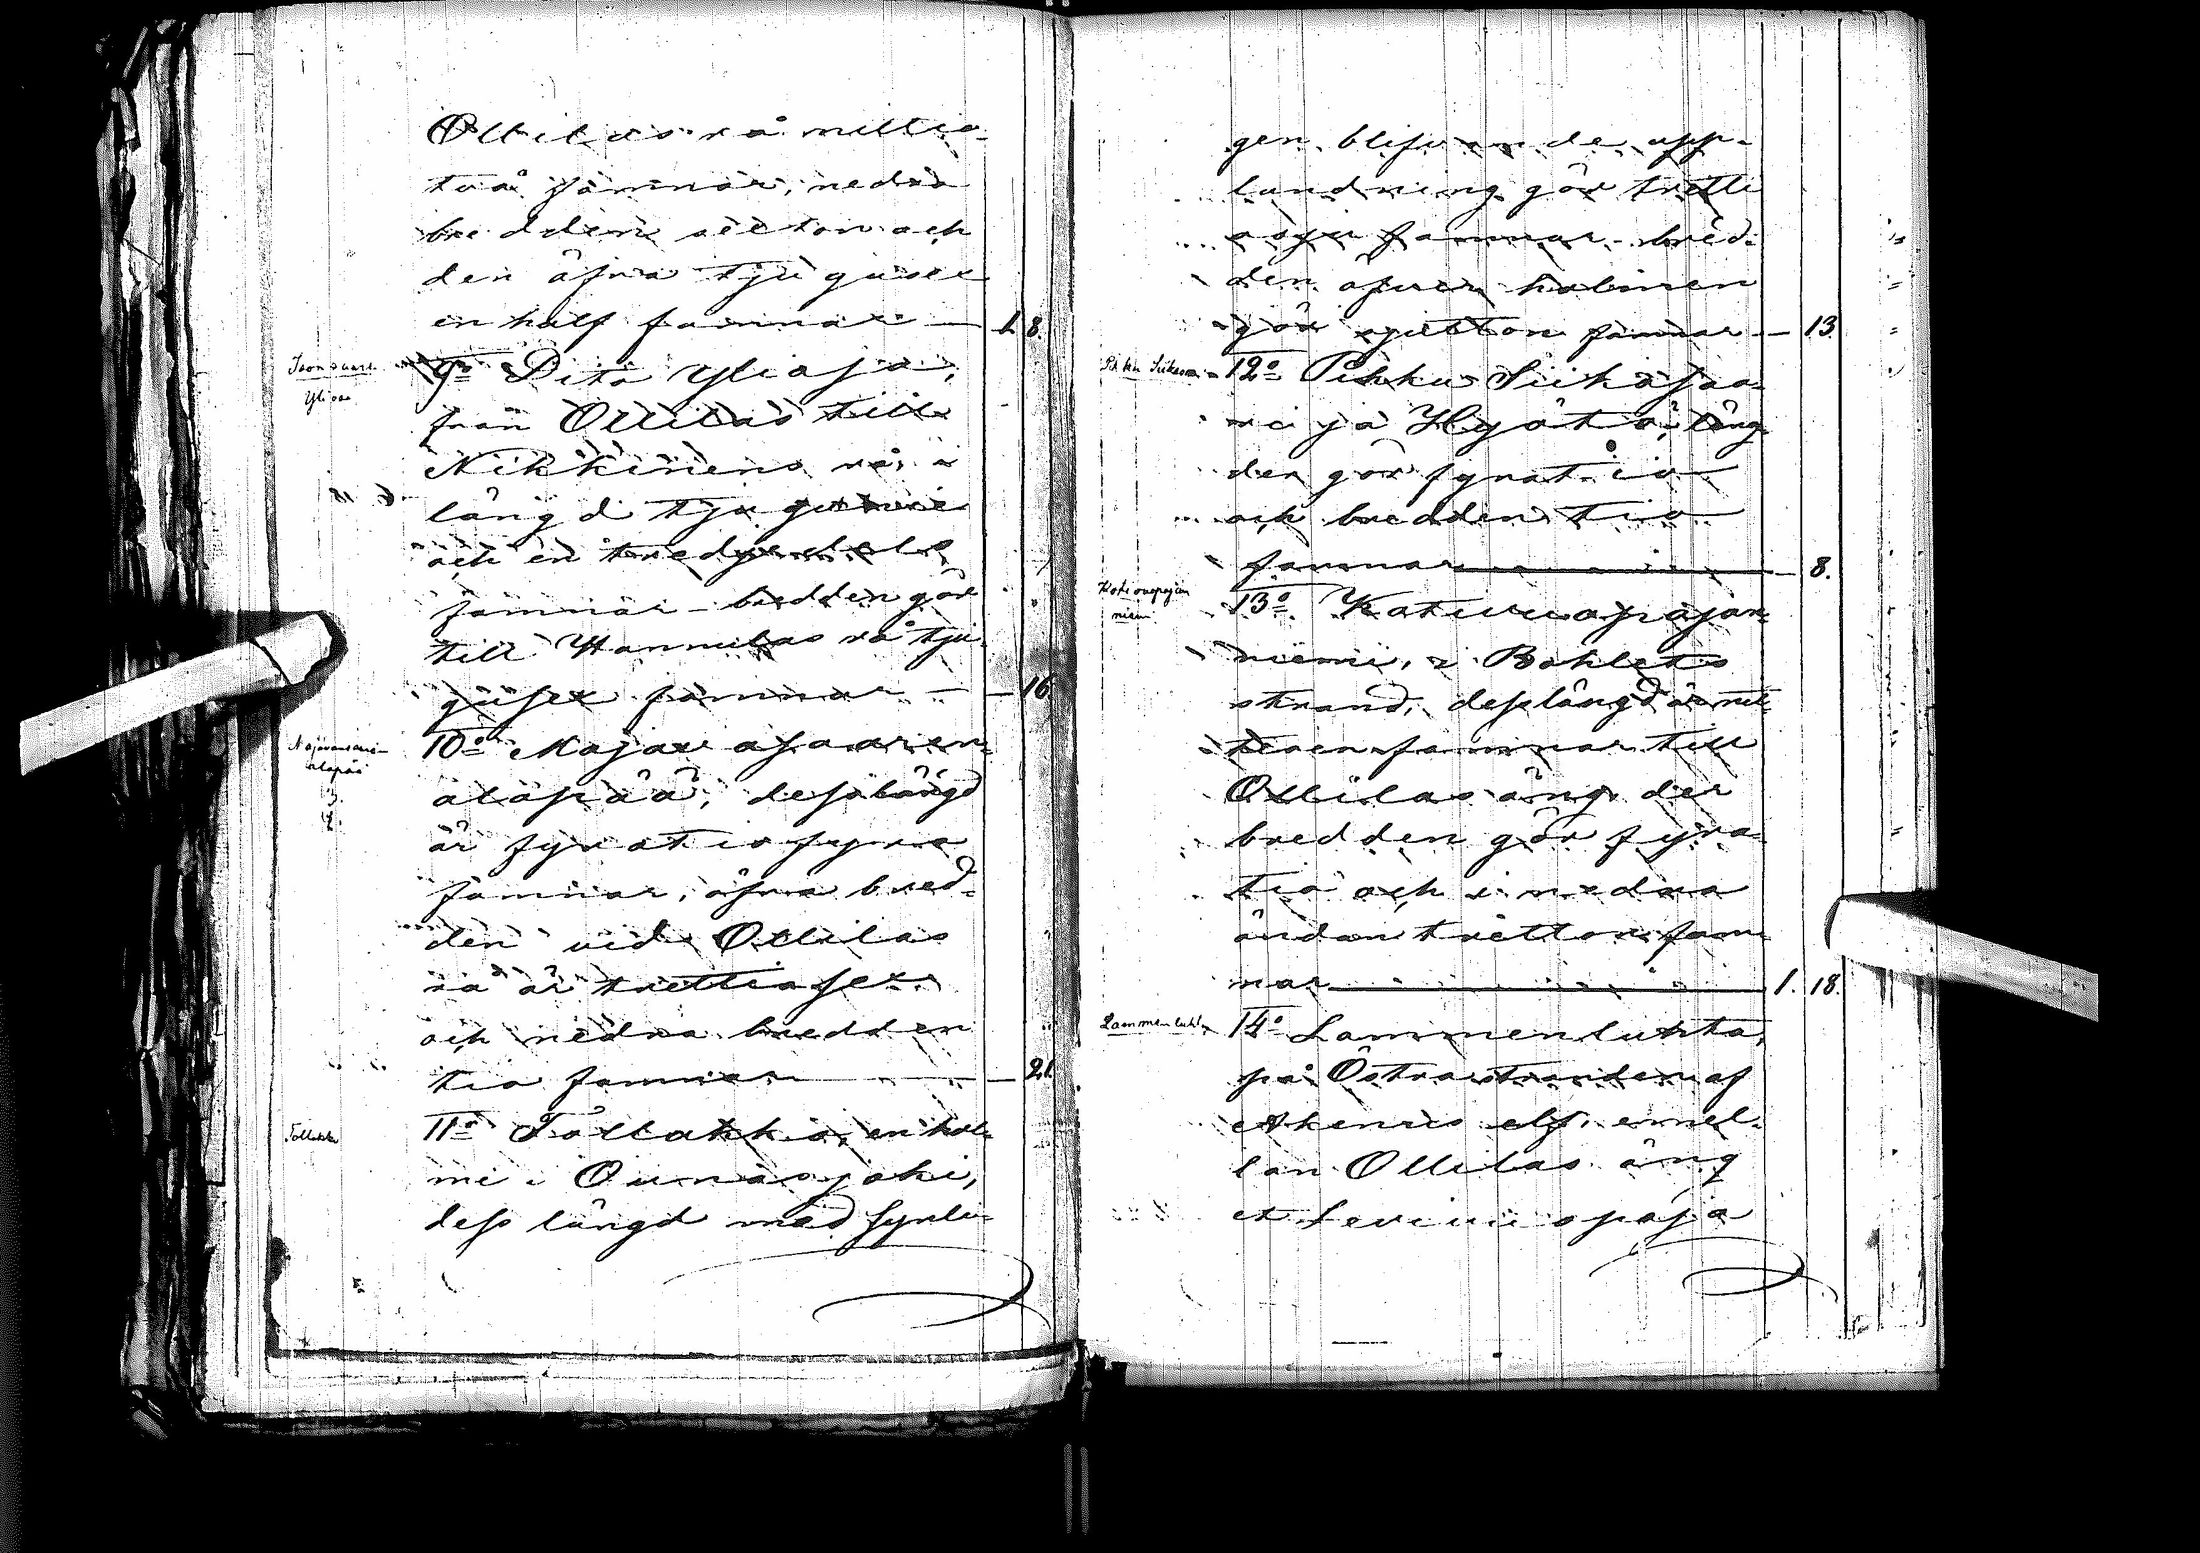 Ollilas rå nittio-
två famnar, nedra
bredden sexton och
den öfra tjugusex
en half famnar — 1. 8.
Ylipää
9o Dito Yliosa,
från Ollilas till
Nikkinens rå, i
längd tjugunie
och en tredjedels
famnar - bredden gör
till Hannulas rå tju-
gusex famnar — 16
Majavansaari
alapää
10o Majavasaaren
alapää, dess längd
är fyratiofyra
famnar, öfra bred-
den vid Ollilas
rå är trettiosex
och nedra bredden
tio famnar — 21.
Tollakko
11o Tollakko, en hol-
me i Ounasjoki,
dess längd med synli-
gen blifvande upp-
landning gör tretti
famnar - bred-
den öfver holmen
gör famnar — 13.
Pikku Siikasa
12o Pikku Siikasaa-
ri ja Hyötö, läng-
den gör fyratio
och bredden tio
famnar — 8.
niemi
13o Kotuuapajan-
niemi, i Bohlets
strand, dess längd är nit-
tioen famnar till
Ollilas äng, der
bredden gör fyra-
tio och i nedra
ändan tretton fam-
nar — 1. 18.
Lammenluhta
14o Lammenluhta,
på Östra stranden af
Akenus elf, emel-
lan Ollilas äng
et Leviniapaja